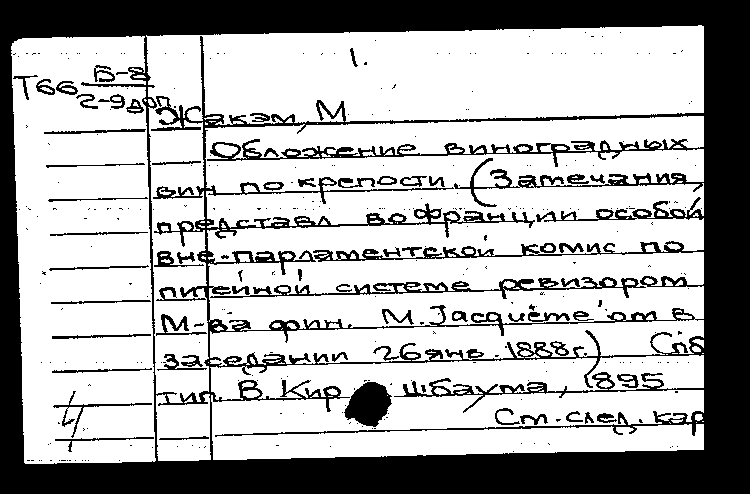 1.
Т66 Б-8
2-9доп
Жакэм, М
Обложение виноградных
вин по крепости. (Замечания,
представл во Франции особой
вне-парламентской комис по
питейной системе ревизором
М-ва фин. M. Jacquème'ом в
заседании 26 янв. 1888 г.) Спб
тип. В. Кир шбаума, 1895
Ст. след. кар
4